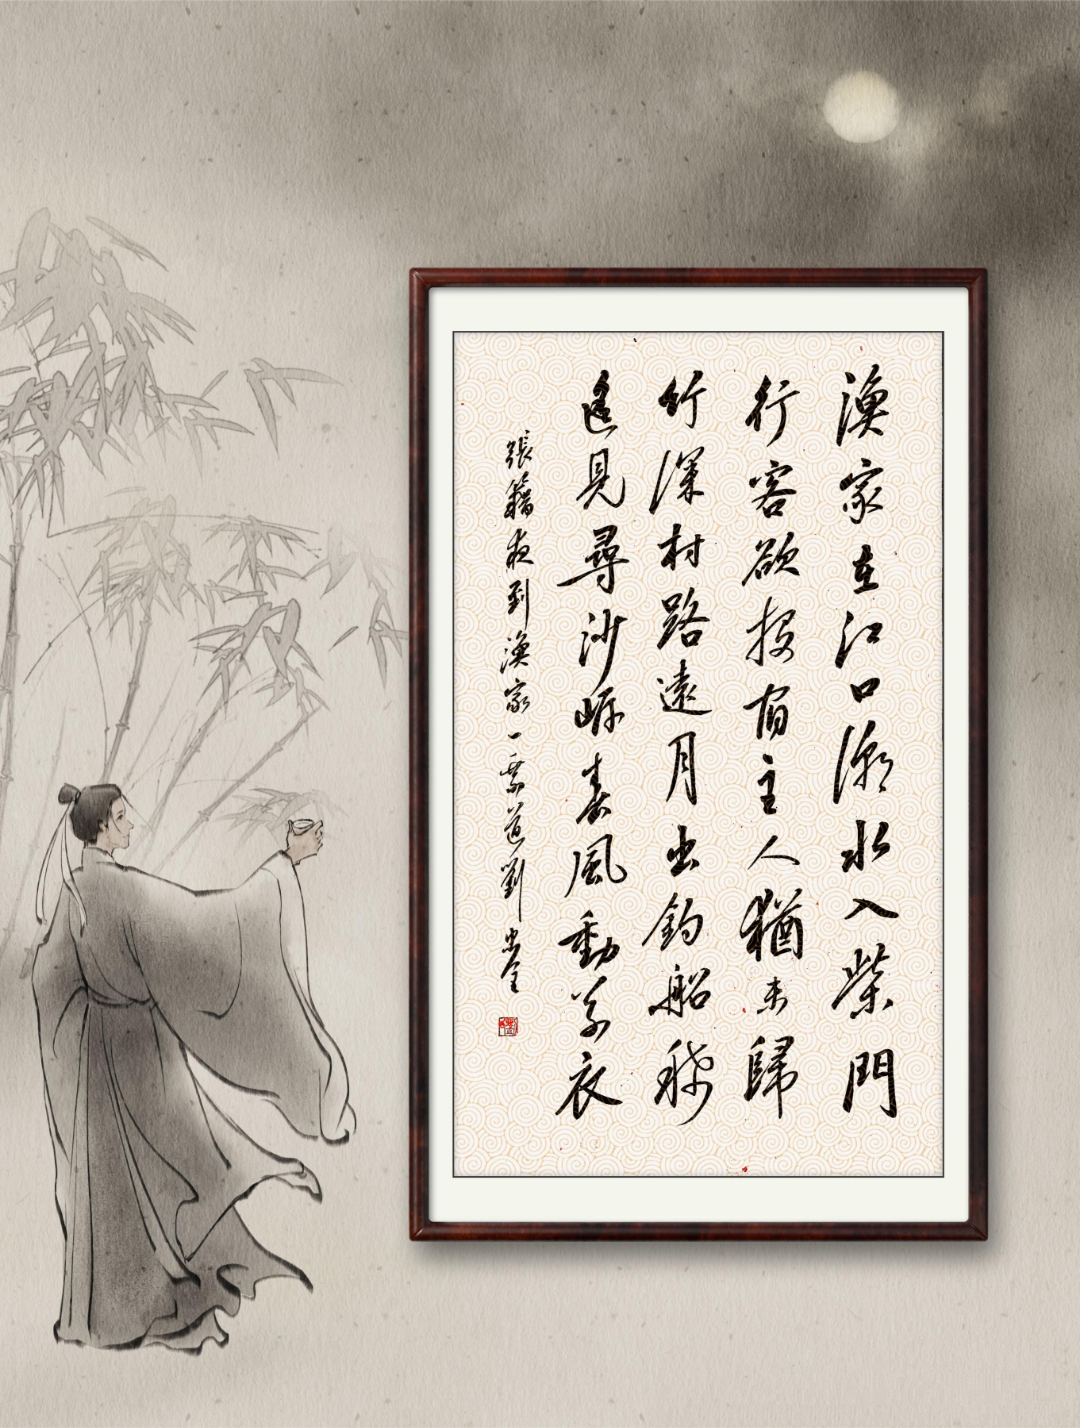 漁家在江口潮水入柴門
行客欲投宿主人猶未歸
竹深村路遠月出釣船稀
遙見尋沙岸春風動草衣
張籍夜到漁家一道劉忠全